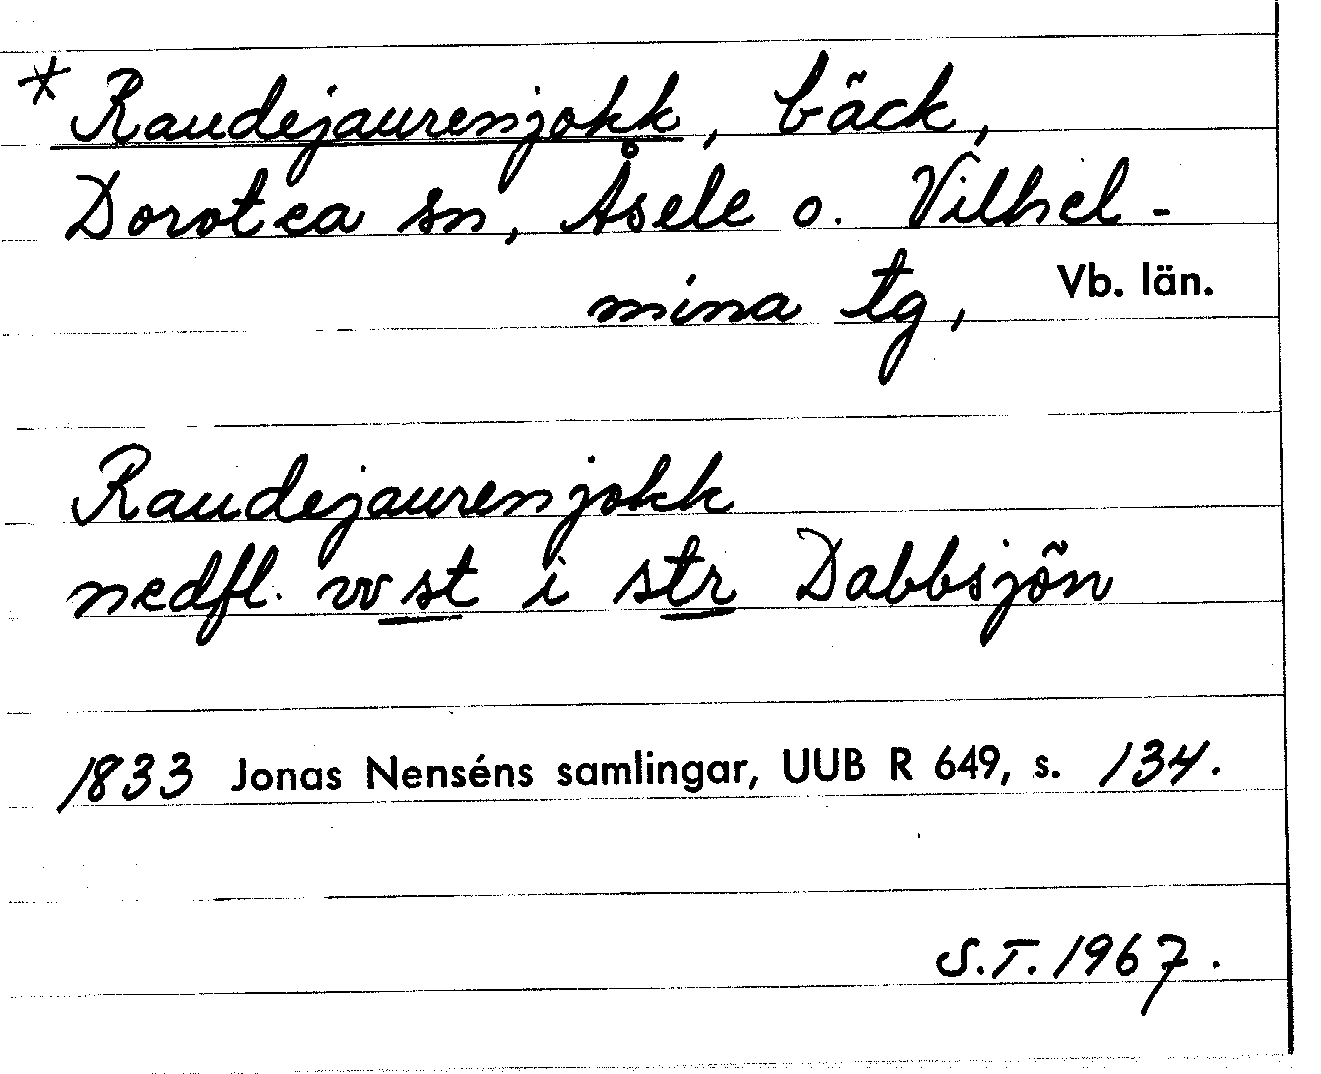 * Raudejaurenjokk, bäck,
Dorotea sn, Åsele o. Vilhel-
mina tg, Vb. län.
Raudejaurenjokk
nedfl. vvst i str Dabbsjön
1833 Jonas Nenséns samlingar, UUB R 649, s. 134.
S.T. 1967.